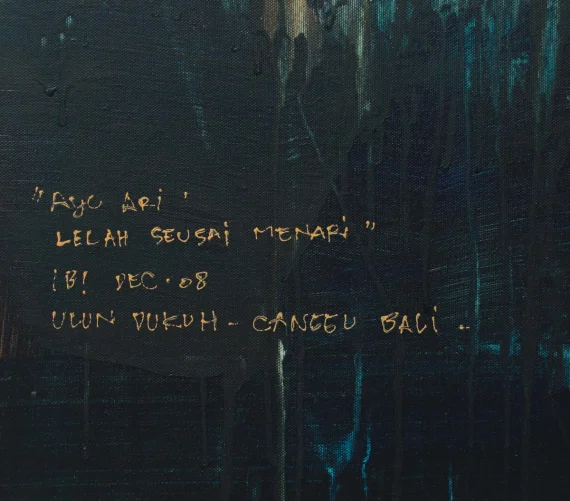 "AYU ARI'
LELAH SEUSAI MENARI"
IBI DEC·08
ULUN DUKUH - CANGGU BALI -